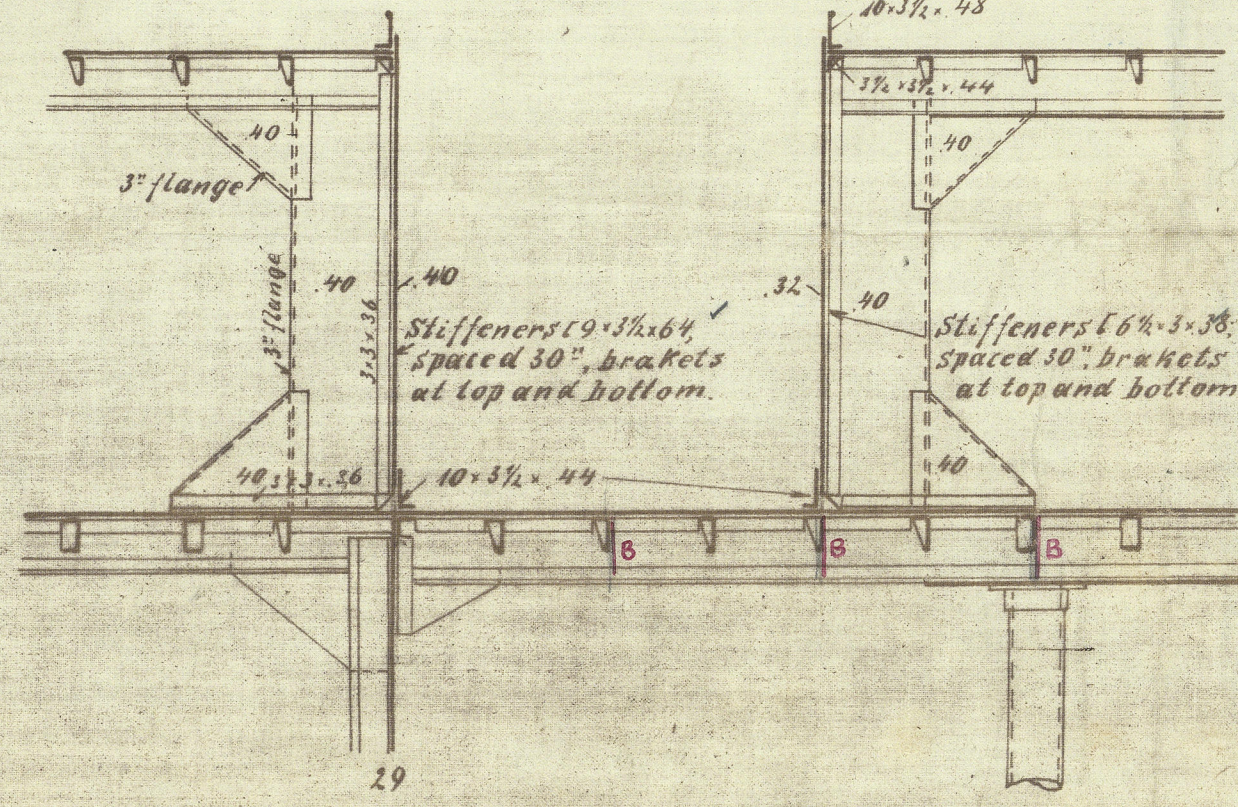 10×3½×.48
3½×3½×.44
.40
3" flange
.40
3" flange
.40
3×3×.36
.40
Stiffeners [ 9×3½×64,
spaced 30", brakets
at top and bottom.
.32
.40
Stiffeners [ 6½×3×.38,
spaced 30", brakets
at top and bottom
40
3×3×.36
10×3½×.44
40
B
B
B
29